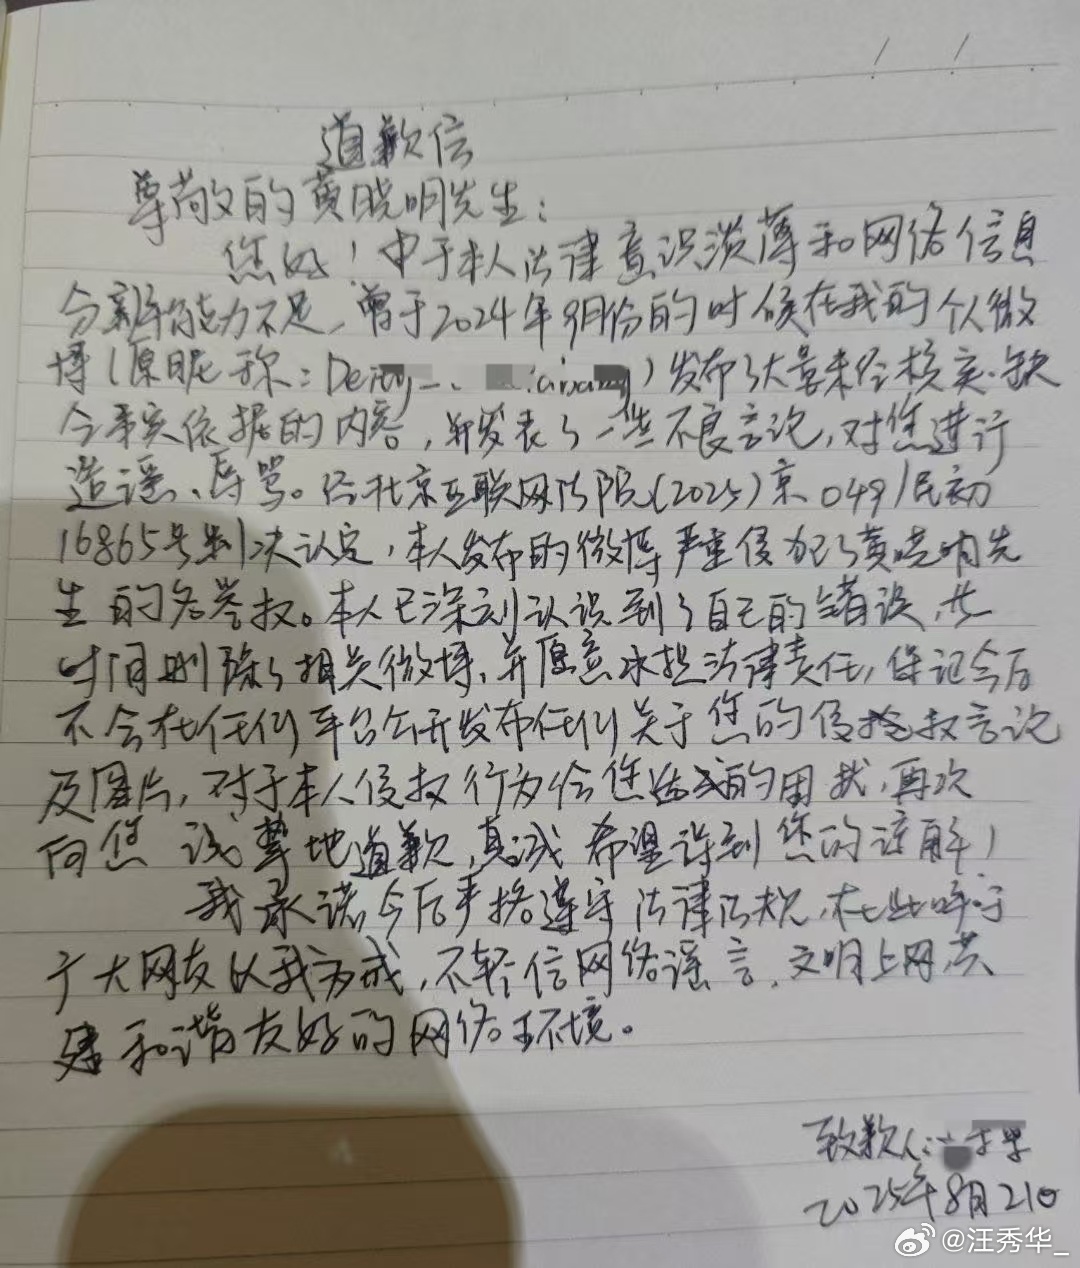 道歉信
尊敬的黄晓明先生：
您好！由于本人法律意识淡薄和网络信息
分辨能力不足，曾于2024年9月份的时候在我的个微
博（原昵称：Deity_）发布了大量未经核实、缺
令事实依据的内容，并发表了一些不良言论，对您进行
造谣、辱骂。经北京互联网法院（2025）京0491民初
16865号判决认定，本人发布的微博严重侵犯了黄晓明先
生的名誉权。本人已深刻认识到了自己的错误，此
时间删除了相关微博，并愿意承担法律责任，保证今后
不会在任何平台公开发布任何关于您的侵权言论
及图片，对于本人侵权行为给您造成的困扰，再次
向您诚挚地道歉，真诚希望得到您的谅解！
我承诺今后严格遵守法律法规，在此呼吁
广大网友以我为戒，不轻信网络谣言，文明上网共
建和谐友好的网络环境。
致歉人：
2025年8月21日
@汪秀华_